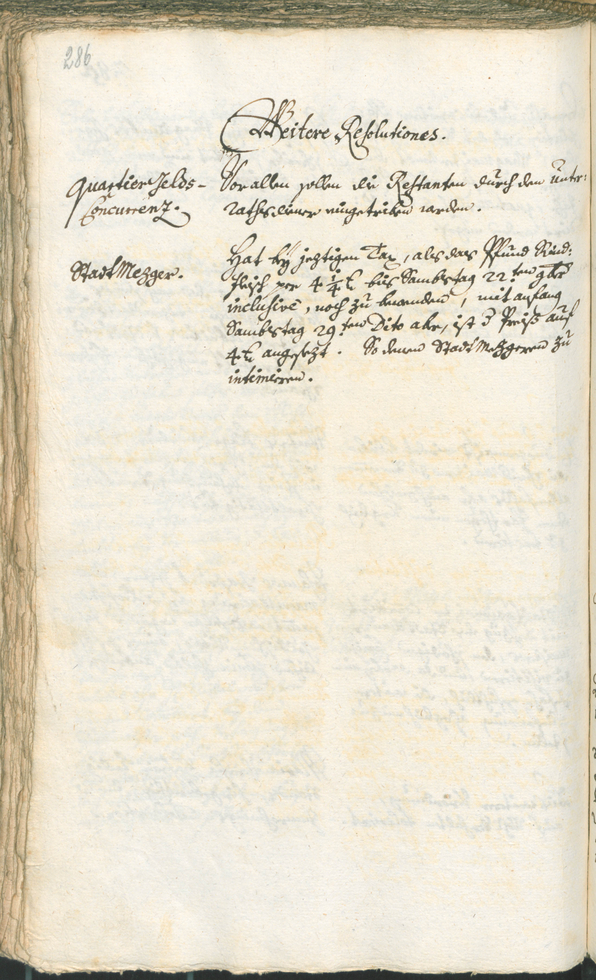 286
Weitere Resolutiones.
Quartier gelds-
Concurrenz.
Vor allen sollen die Restanten durch den unter-
rathsdiener eingetriben werden.
Stadt Mezger.
Hat bey jeztigen Tax, als das Pfund Rind-
fleisch per 4 1/4 x bis Sambstag 22ten
inclusivè, noch zu bewenden, mit anfang
Sambstag 29ten Dito aber, ist d Preiß auf
4 x angesezt. So denen Stadt Mezgeren zu
intimiren.